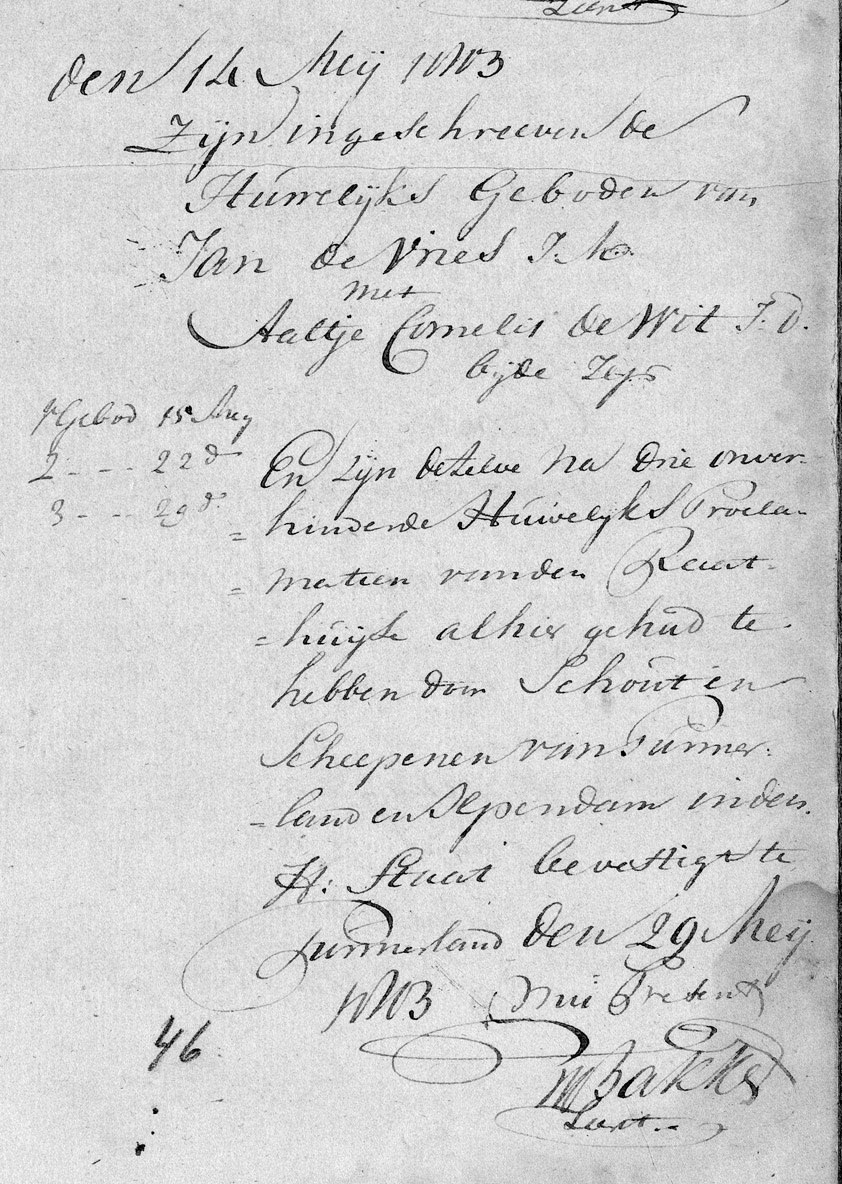 Secrt
den 14 Meij
Zijn ingeschreeven de
Huwelijks Geboden van
Jan de Vries J.M.
met
Aaltje Cornelis de Wit J.D.
bijde
1e Gebod 15 Meij
2 - - - 22 do
3 - - - 29 do
En zijn dezelve na drie onver-
= hinderde Huwelyks Procla-
= matien van den Recht-
= huijse alhier gehad te
hebben door Schout en
Scheepenen van Purmer-
= land en Ilpendam in den
H: Staat bevestigt te
Purmerland den 29 Meij
Mij Present
M Bakker
Secrt.
46